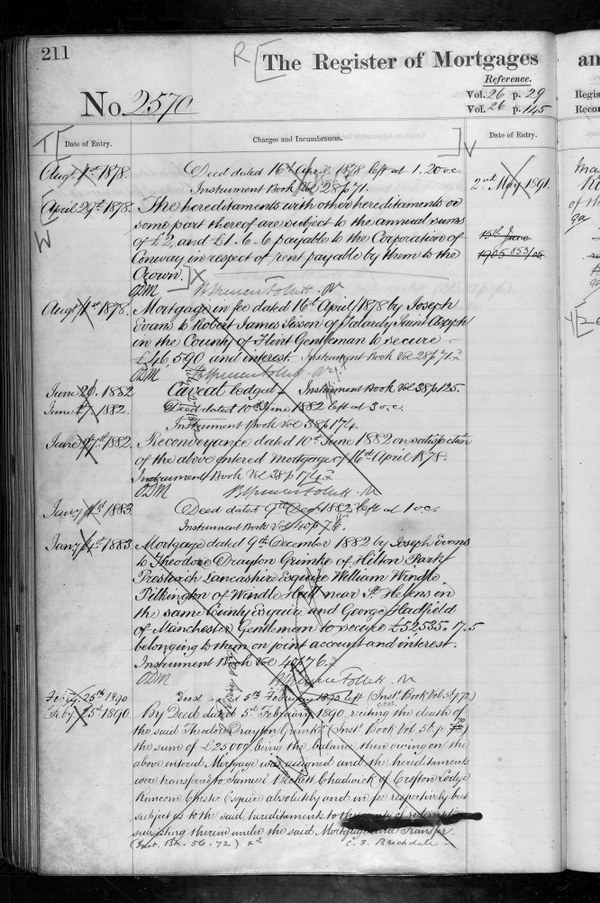 211
The Register of Mortgages
an
Reference.
No. 2570
Vol. 26 p. 29
Regis
Vol. 26 p. 145
Recor
Date of Entry.
Charges and Incumbrances.
Date of Entry.
Augt 1st 1878.
Deed dated 16th April 1878 left at 1.20 o.c.
Instrument Book Vol 28 p 71.
2nd May 1891.
April 29th 1878.
The hereditaments with other hereditaments or
some part thereof are subject to the annual sums
of £2, and £1.6.6 payable to the Corporation of
15th June
Conway in respect of rent payable by them to the
1905
Crown.
ODM
Augt 1st 1878.
Mortgage in fee dated 16th April 1878 by Joseph
Evans to Robert James Sisson of Talardy Saint Asaph
in the County of Flint Gentleman to secure
£46590 and interest. Instrument Book Vol 28 p 71.
ODM
June 20. 1882
Caveat lodged Instrument Book Vol 38 p 125.
June 27. 1882.
Deed dated 10th June 1882 left at 3 o.c.
Instrument Book Vol 38 p 174.
June 27th 1882.
Reconveyance dated 10th June 1882 on satisfaction
of the above entered Mortgage of 16th April 1878.
Instrument Book Vol 38 p 174.
ODM
Jany 4th 1883.
Deed dated 9th Decr 1882 left at 1 o.c.
Instrument Book Vol 40 p 76.
Jany 4th 1883.
Mortgage dated 9th December 1882 by Joseph Evans
to Theodore Drayton Grimke of Hilton Park
Prestwich Lancashire Esquire William Windle
Pilkington of Windle Hall near St Helens in
the same County Esquire and George Hadfield
of Manchester Gentleman to secure £52535.17.5
belonging to them on joint account and interest.
Instrument Book Vol 40 p 76.
ODM
Feby 25th 1890
Deed dated 5th February 1890 left (Inst. Book Vol. 56 p 72)
Feby 25th 1890.
By Deed dated 5th February 1890, reciting the death of
the said Theodore Drayton Grimke (Inst. Book Vol. 56. p. 72)
the sum of £25000 being the balance then owing on the
above entered Mortgage was assigned and the hereditaments
were transferred to Samuel Chadwick of Crofton Lodge
Runcorn Chester Esquire absolutely and in fee respectively but
subject as to the said hereditaments to the equity of redemption
subsisting therein under the said Mortgage and Transfer.
(Inst. Bk. 56. 72)